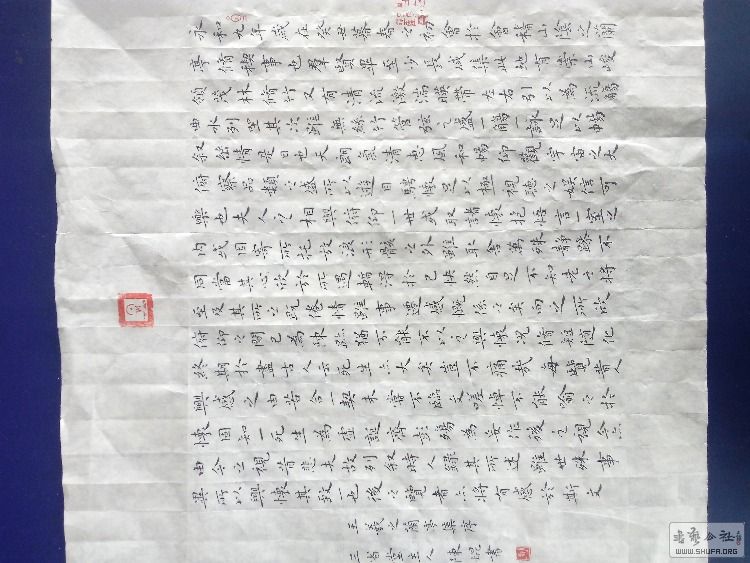 永和九年歲在癸丑暮春之初會於會稽山陰之蘭
亭脩禊事也羣賢畢至少長咸集此地有崇山峻
領茂林脩竹又有清流激湍暎帶左右引以為流觴
曲水列坐其次雖無絲竹管弦之盛一觴一詠足以暢
叙幽情是日也天朗氣清惠風和暢仰觀宇宙之大
俯察品類之盛所以遊目騁懷足以極視聽之娛信可
樂也夫人之相與俯仰一世或取諸懷抱悟言一室之
內或因寄所託放浪形骸之外雖取舍萬殊靜躁不
同當其欣於所遇暫得於己快然自足不知老之將
至及其所之既倦情隨事遷感慨係之矣向之所欣
俯仰之間已為陳迹猶不能不以之興懷況脩短隨化
終期於盡古人云死生亦大矣豈不痛哉每覽昔人
興感之由若合一契未嘗不臨文嗟悼不能喻之於
懷固知一死生為虛誕齊彭殤為妄作後之視今亦
由今之視昔悲夫故列叙時人錄其所述雖世殊事
異所以興懷其致一也後之覽者亦將有感於斯文
王羲之蘭亭集序
三省堂主人陳書
WWW.SHUFA.ORG